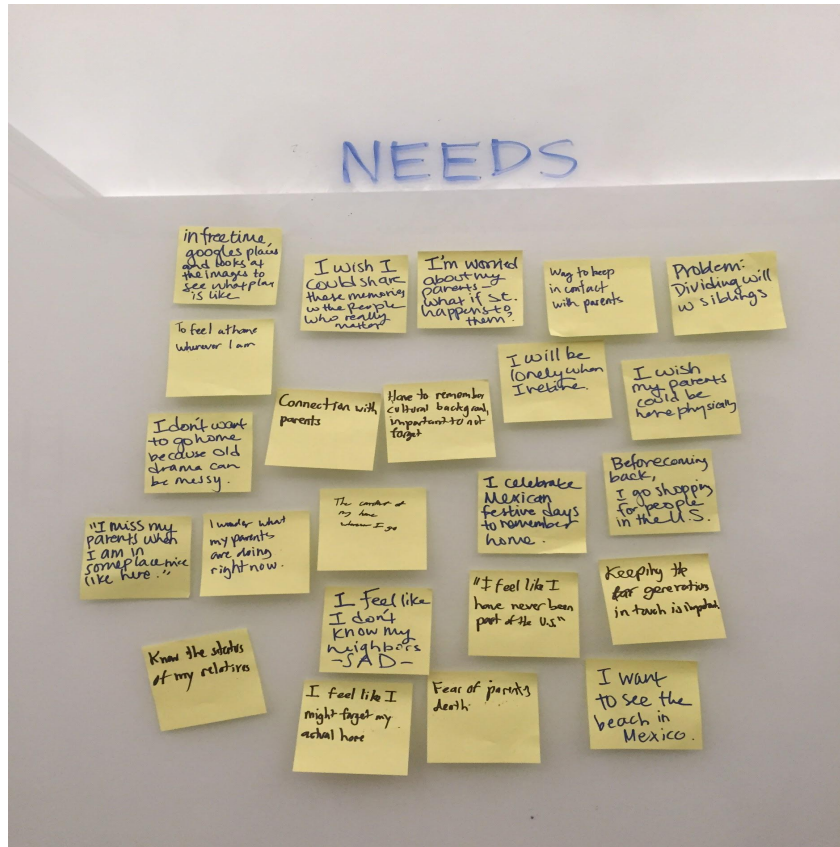 NEEDS
in free time,
googles places
and looks at
the images to
see what place
is like
I wish I
could share
these memories
w the people
who really
matter
I'm worried
about my
parents -
what if st.
happens to
them?
Way to keep
in contact
with parents
Problem:
Dividing will
w siblings
To feel at home
wherever I am
I will be
lonely when
I retire.
I wish
my parents
could be
here physically
Connection with
parents
Have to remember
cultural background,
important to not
forget
I don't want
to go home
because old
drama can
be messy.
I celebrate
Mexican
festive days
to remember
home.
Before coming
back,
I go shopping
for people
in the U.S.
"I miss my
parents when
I am in
someplace nice
like here."
I wonder what
my parents
are doing
right now.
The comfort of
my home
wherever I go
I feel like
I don't
know my
neighbors
-SAD-
"I feel like I
have never been
part of the U.S"
Keeping the
generations
in touch is important
Know the status
of my relatives
I feel like I
might forget my
actual home
Fear of parents
death
I want
to see the
beach in
Mexico.